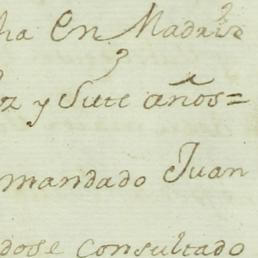 ha En Madrid
z y Siete años=
mandado Juan
dose consultado